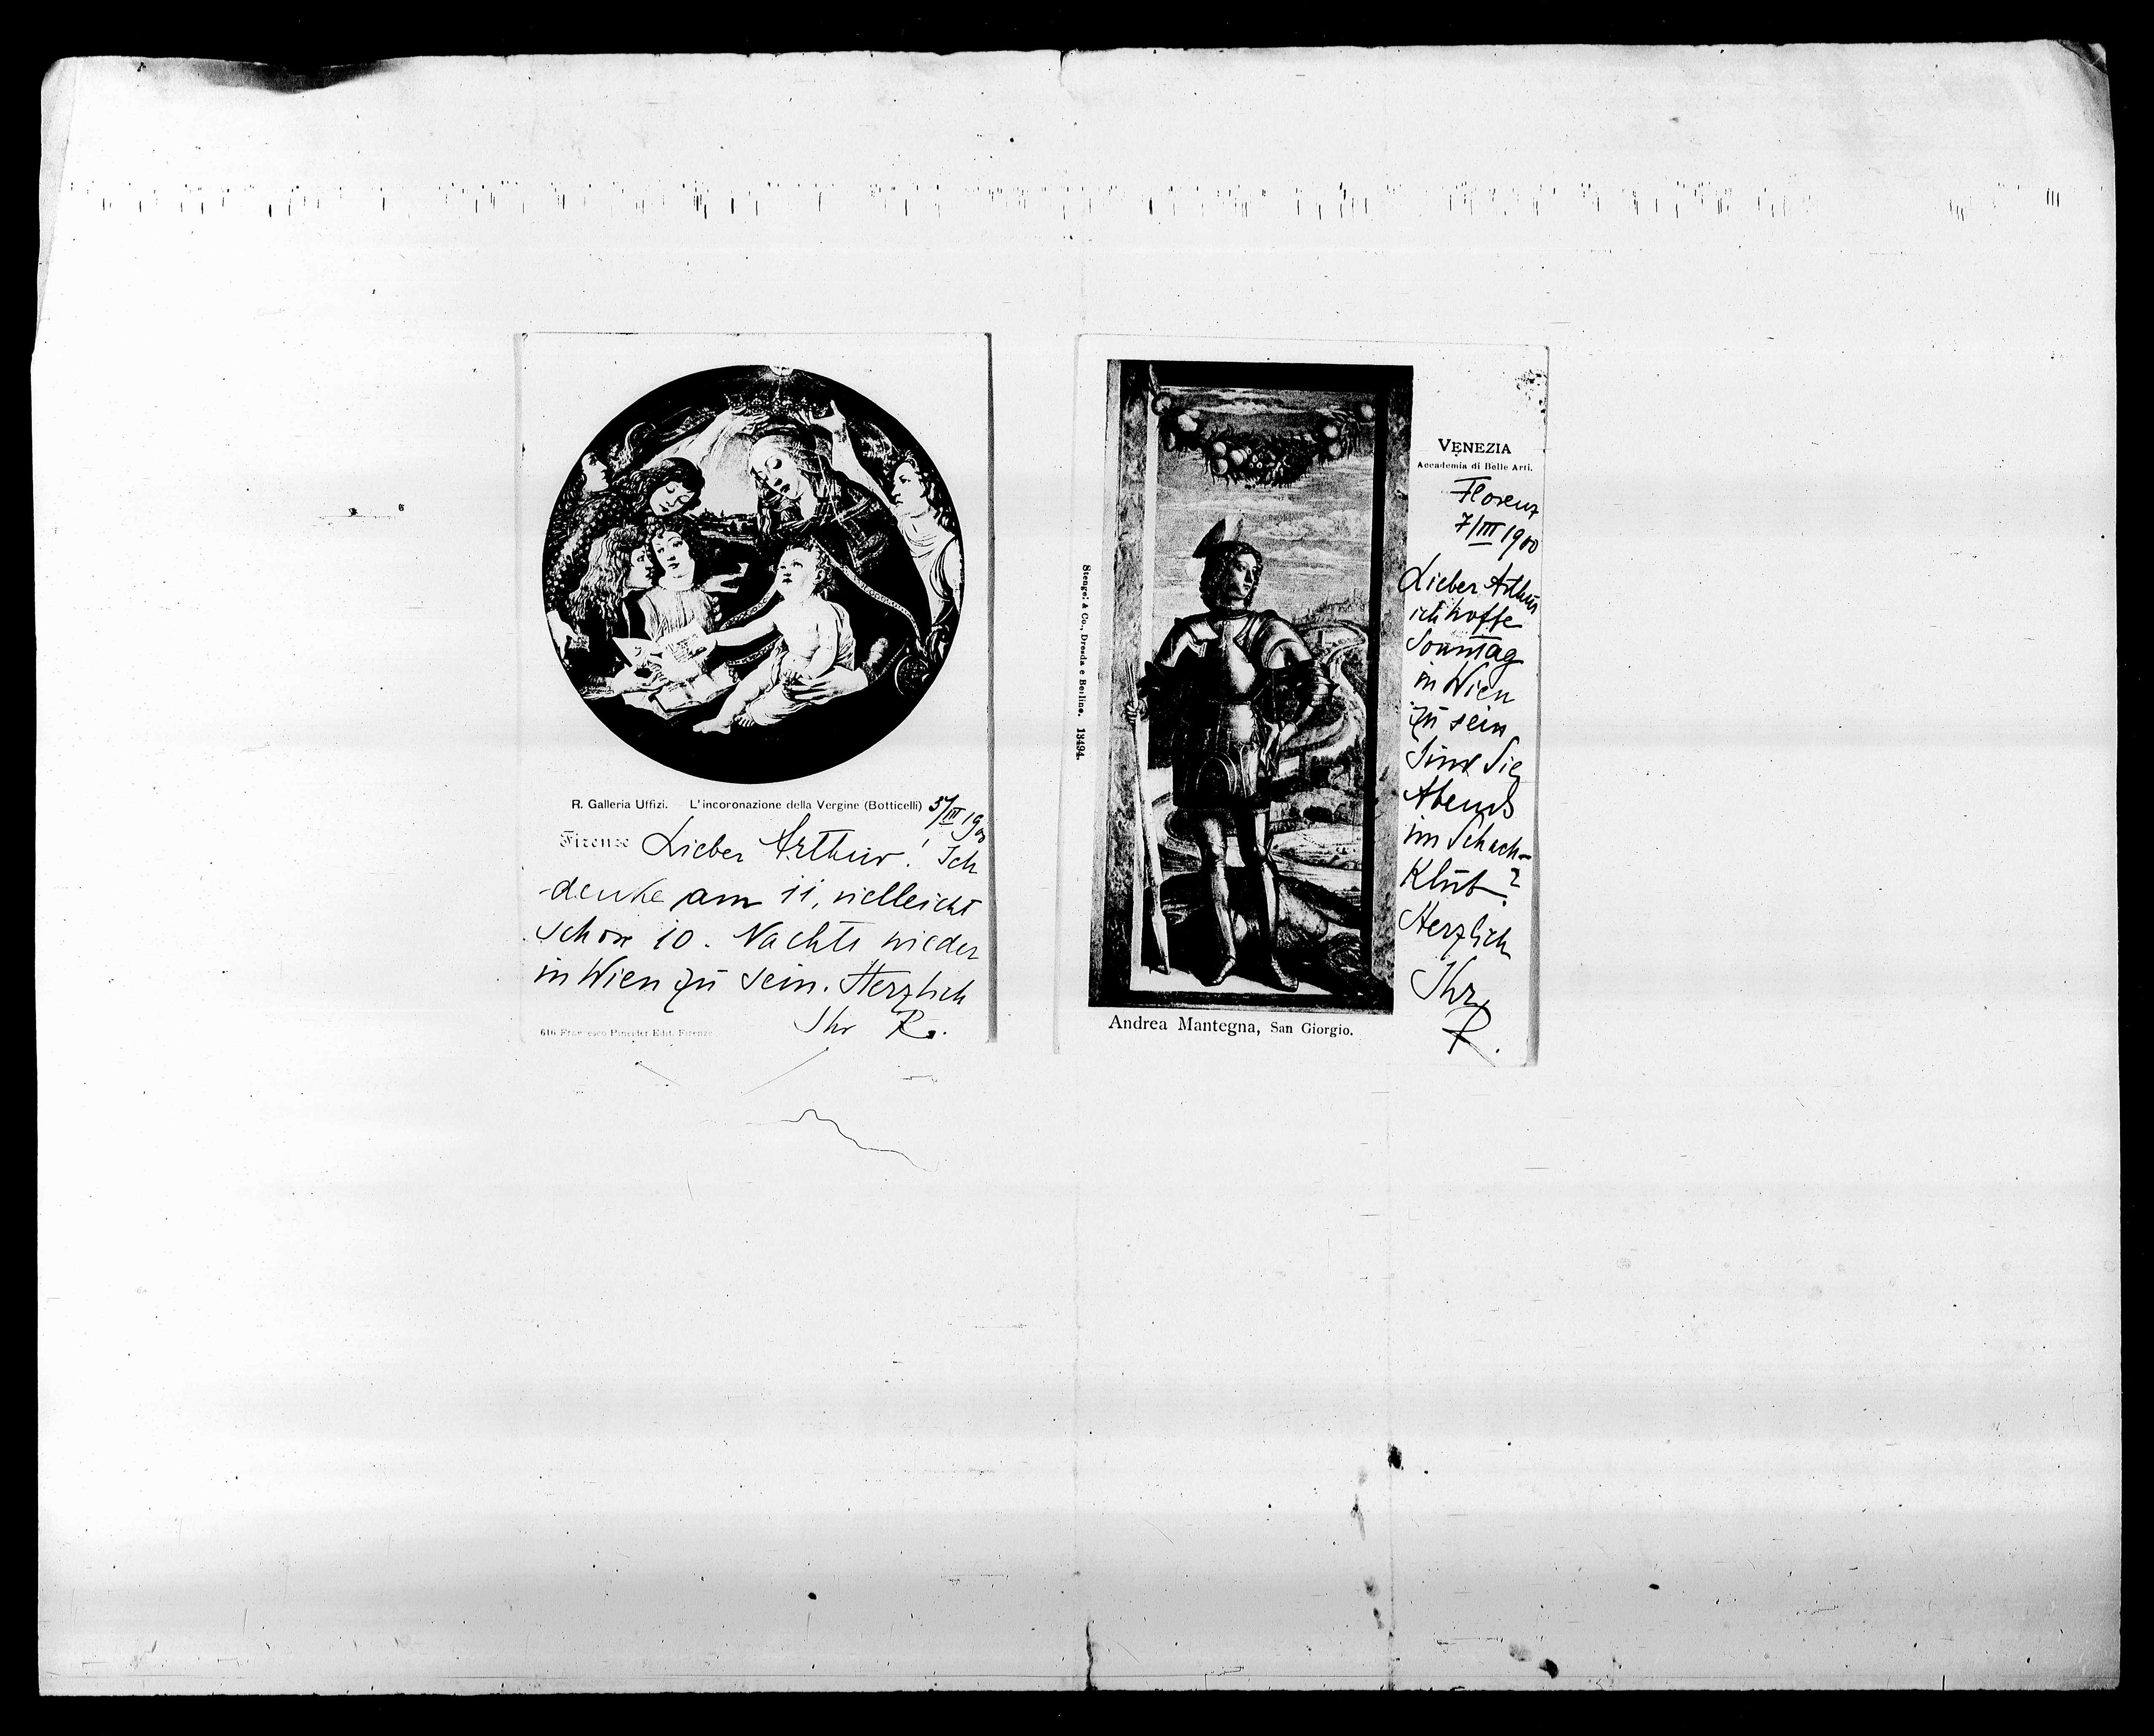 R. Galleria Uffizi. L'incoronazione della Vergine (Botticelli) 5/III 1900
Firenze Lieber Arthur! Ich
denke am 11, vielleicht
schon 10. Nachts wieder
in Wien zu sein. Herzlich
Ihr R.
616 Francesco Pineider Edit. Firenze
Stengel & Co., Dresda e Berlino. 13494.
VENEZIA
Accademia di Belle Arti.
Florenz
7/III 1900
Lieber Arthur
ich hoffe
Sonntag
in Wien
zu sein
Sind Sie
Abends
im Schach-
Klub?
Herzlich
Ihr
R.
Andrea Mantegna, San Giorgio.